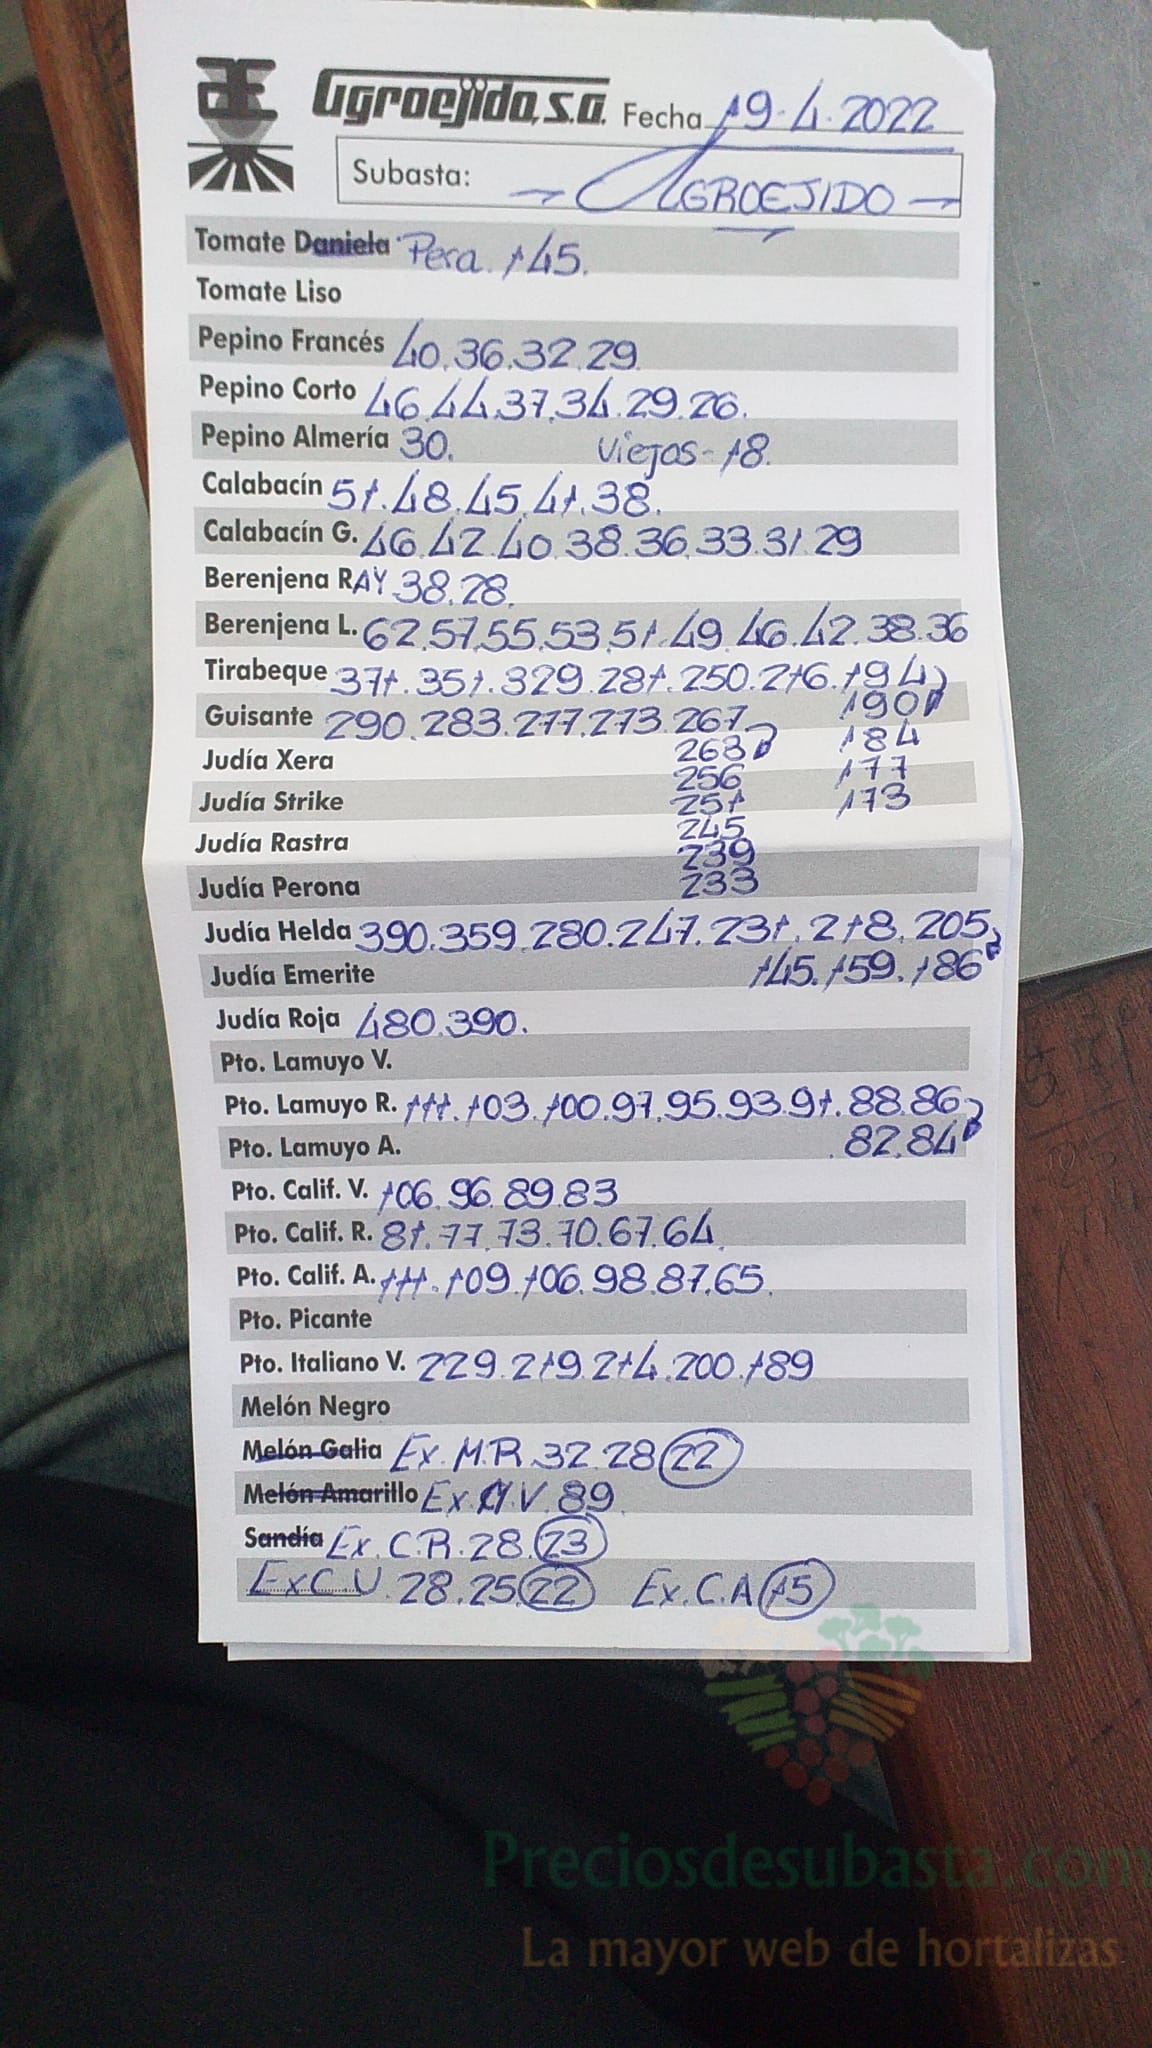 Agroejido, s.a. Fecha 19-4.2022
Subasta: AGROEJIDO
Tomate Daniela Pera. 145.
Tomate Liso
Pepino Francés 40.36.32.29
Pepino Corto 46.44.37.34.29.26.
Pepino Almería 30. Viejos-18.
Calabacín 51.48.45.41.38.
Calabacín G. 46.42.40.38.36.33.31.29
Berenjena RAY 38.28.
Berenjena L. 62.57.55.53.51.49.46.42.38.36
Tirabeque 371.351.329.281.250.216.194
190
Guisante 290.283.277.273.267
263 184
Judía Xera
256 177
Judía Strike 251 173
245
Judía Rastra
239
Judía Perona 233
Judía Helda 390.359.280.247.231.218.205
Judía Emerite 145.159.186
Judía Roja 480.390.
Pto. Lamuyo V.
Pto. Lamuyo R. 111.103.100.97.95.93.91.88.86
Pto. Lamuyo A. 82.84
Pto. Calif. V. 106.96.89.83
Pto. Calif. R. 81.77.73.70.67.64
Pto. Calif. A. 111.109.106.98.87.65.
Pto. Picante
Pto. Italiano V. 229.219.214.200.189
Melón Negro
Melón Galia Ex.M.R.32.28 22
Melón Amarillo Ex M.V.89.
Sandía Ex.C.R.28.23
ExC.U.28.25.22 Ex.C.A 15
Preciosdesubasta.com
La mayor web de hortalizas